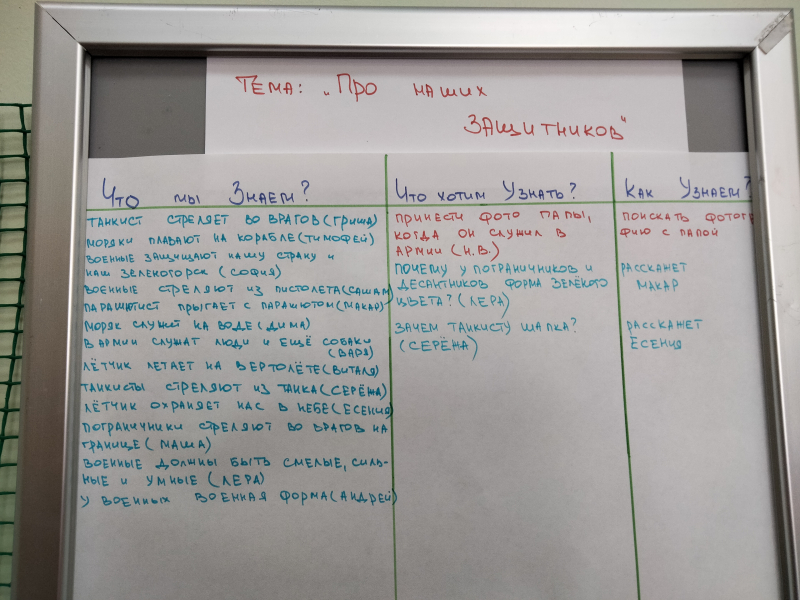 Тема: „Про наших
защитников"
Что мы Знаем?
танкист стреляет во врагов (Гриша)
моряки плавают на корабле (Тимофей)
военные защищают нашу страну и
наш Зеленогорск (София)
военные стреляют из пистолета (СашаМ)
парашютист прыгает с парашютом (Макар)
моряк служит на воде (Дима)
в армии служат люди и ещё собаки
(Варя)
лётчик летает на вертолёте (Виталя)
танкисты стреляют из танка (Серёжа)
лётчик охраняет нас в небе (Есения)
пограничники стреляют во врагов на
границе (Маша)
военные должны быть смелые, силь-
ные и умные (Лера)
у военных военная форма (Андрей)
Что хотим Узнать?
принести фото папы,
когда он служил в
армии (Н.В.)
почему у пограничников и
десактников форма зелёкого
цвета? (Лера)
зачем танкисту шапка?
(Серёжа)
Как Узнаем?
поискать фотогр
фию с папой
расскажет
Макар
расскажет
Есения